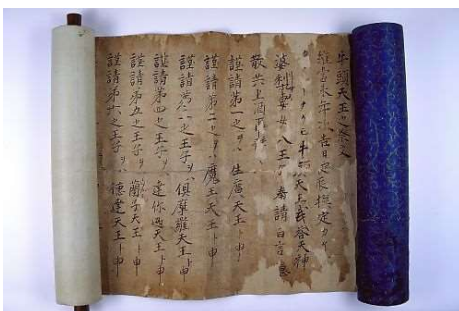 牛頭天王之祭文
維當来年次吉日良辰撰定
牛頭天王武答天神
婆利采女八王子 奉請白言
散共上酒
謹請第一之 生廣天王ト申
謹請第二之ヲハ魔王天王ト申
謹請第三之王子ヲハ倶摩羅天王ト申
謹請第四之王子ヲハ達你迦天王ト申
謹請第五之王子ヲハ蘭子天王ト申
謹請第六之王子ヲハ徳達天王ト申